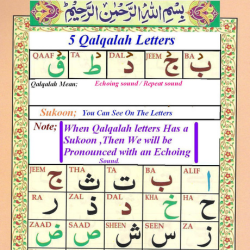 بِسْمِ اللهِ الرَّحْمٰنِ الرَّحِيْمِ
5 Qalqalah Letters
QAAF DAL JEEM BA
ق ط د ج ب
Qalqalah Mean: Echoing sound / Repeat sound
Sukoon; You Can See On The Letters
Note; When Qalqalah letters Has a
Sukoon ,Then We will be
Pronounced with an Echoing
Sound.
JEEM ALIF
ج ث ت ب ا
DAL KHA
ر ذ د خ ح
ZAAD SAAD SHEEN SEEN ZA
ض ص ش س ز